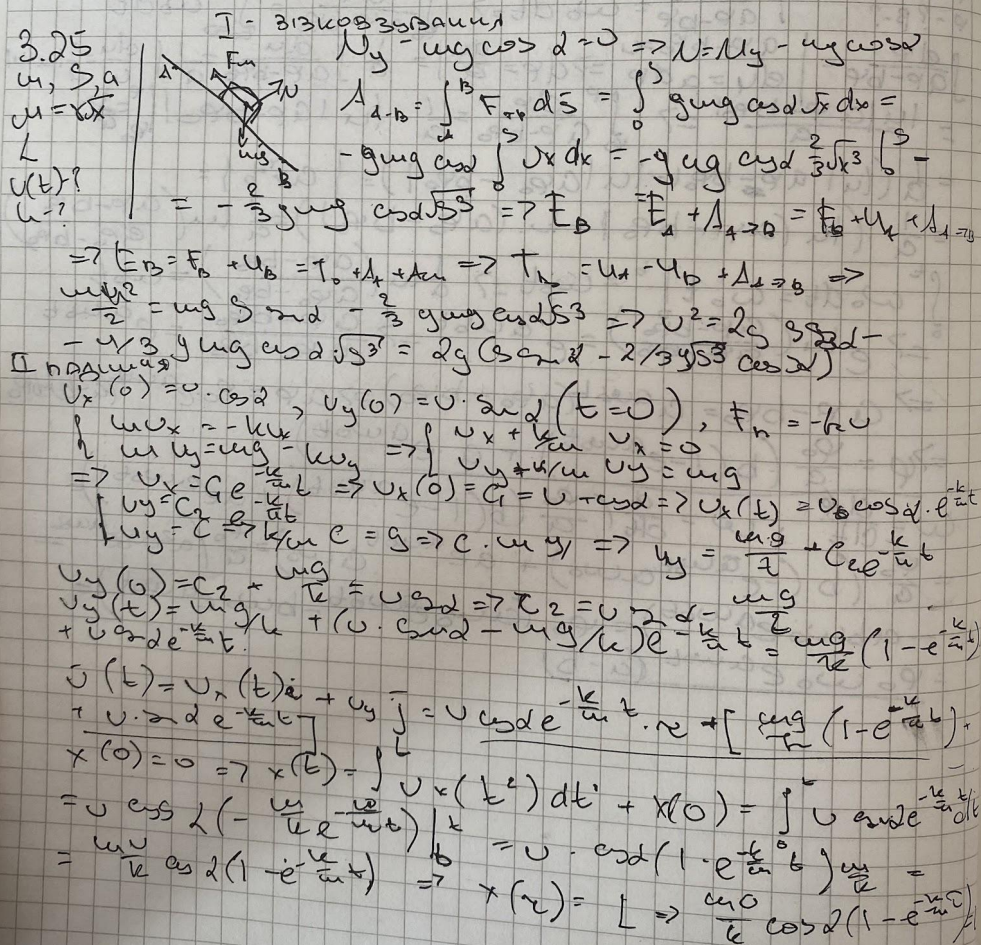 3.25
m, S, α
μ = γ√x
L
υ(t)-?
h-?
I - зісковзування
N_y - mg cos α = 0 => N = N_y - mg cos α
A Fт N mg B
A_{A-B} = ∫_A^B F_тр dS = ∫_0^S gmg cos α √x dx =
- gmg cos α ∫_0^S √x dx = - g mg cos α 2/3 √x³ |_0^S -
= - 2/3 gmg cos α √S³ => E_B = E_A + A_{A→B} = E_B + U_A + A_{A→B}
=> E_B = F_B + U_B = T_0 + A_A + A_m => T_h = U_A - U_B + A_{A→B} =>
mυ²/2 = mg S sin α - 2/3 gmg cos α √S³ => υ² = 2g S sin α -
- 4/3 g mg cos α √S³ = 2g (S sin α - 2/3 g √S³ cos α)
II падіння
υ_x(0) = υ · cos α, υ_y(0) = υ · sin α (t = 0), F_h = -kυ
{ mυ_x = -kυ_x => { υ_x + k/m υ_x = 0
m υ_y = mg - kυ_y υ_y + k/m υ_y = mg
=> υ_x = C_1 e^{-k/m t} => υ_x(0) = C_1 = υ + cos α => υ_x(t) = υ_0 cos α · e^{-k/m t}
{ υ_y = C_2 e^{-k/m t}
υ_y = C => k/m C = g => C · m g => υ_y = mg/k + C_2 e^{-k/m t}
υ_y(0) = C_2 + mg/k = υ sin α => C_2 = υ sin α - mg/k
υ_y(t) = mg/k + (υ · sin α - mg/k) e^{-k/m t} = mg/k (1 - e^{-k/m t})
+ υ sin α e^{-k/m t}.
ῡ(t) = υ_x(t) i + υ_y j = υ cos α e^{-k/m t} · i + [mg/k (1 - e^{-k/m t}) ·
+ υ · sin α e^{-k/m t}]
x(0) = 0 => x(t) = ∫ υ_x(t') dt' + x(0) = ∫_0^t υ cos α e^{-k/m t} dt
= υ cos α (- m/k e^{-k/m t}) |_0^t = υ · cos α (1 - e^{-k/m t}) m/k =
= mυ/k cos α (1 - e^{-k/m t}) => x(τ) = L => mυ/k cos α (1 - e^{-k/m τ})